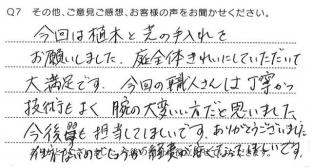 Q7 その他、ご意見ご感想、お客様の声をお聞かせください。
今回は植木と芝の手入れを
お願いしました。庭全体きれいにしていただいて
大満足です。今回の職人さんは丁寧かつ
技術もよく腕の大変いい方だと思いました。
今後も担当してほしいです。ありがとうございました